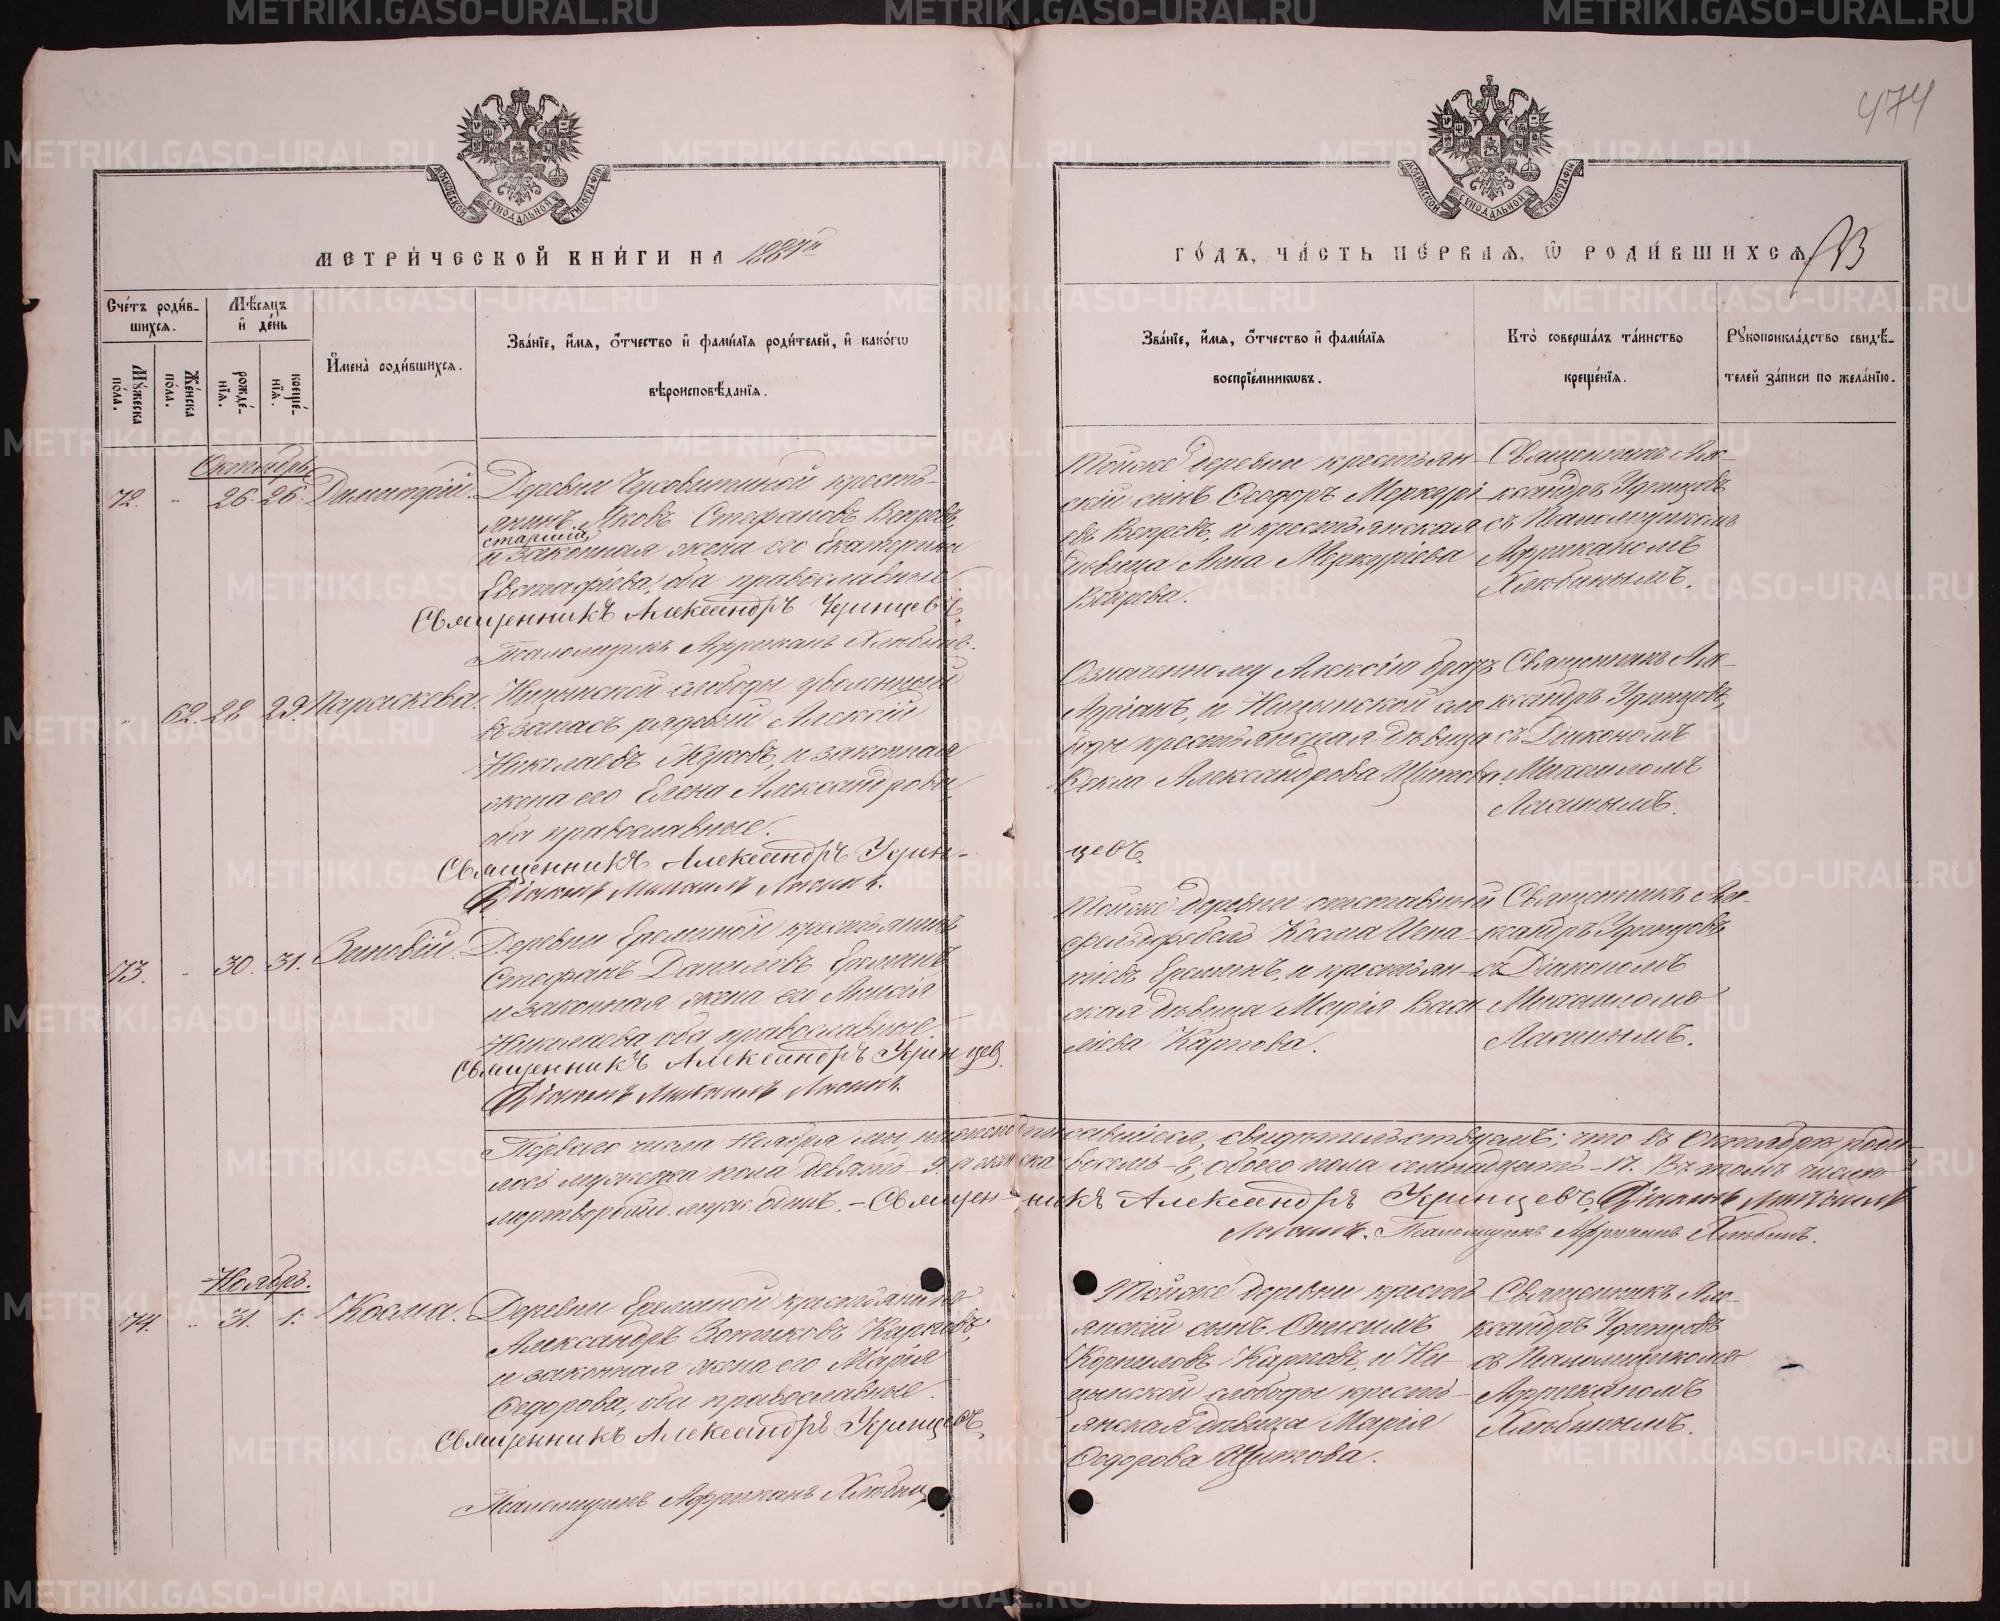 474
МОСКОВСКОЙ СѴНОДАЛЬНОЙ ТИПОГРАФІИ
МОСКОВСКОЙ СѴНОДАЛЬНОЙ ТИПОГРАФІИ
МЕТРИ́ЧЕСКОЙ КНИ́ГИ НА 1887й
ГО́ДЪ, ЧА́СТЬ ПЕ́РВАѦ, Ѡ҆ РОДИ́ВШИХСѦ.
Сче́тъ роди́в-
шихсѧ.
Мѣ́сѧцъ
и҆ де́нь
Мꙋ́жеска по́ла.
Же́нска по́ла.
рожде́нїѧ.
креще́нїѧ.
И҆мена̀ роди́вшихсѧ.
Зва́нїе, и҆́мѧ, ѻ҆́тчество и҆ фамі́лїѧ роди́телей, и҆ како́гѡ
вѣроисповѣ́данїѧ.
Зва́нїе, и҆́мѧ, ѻ҆́тчество и҆ фамі́лїѧ
воспрїе́мникѡвъ.
Кто̀ соверша́лъ та́инство
креще́нїѧ.
Рꙋкоприкла́дство свидѣ́-
телей за́писи по жела́нїю.
Октябрь
72. " 26. 26. Димитрій.
Деревни Чусовитиной кресть-
янинъ Яковъ Стефановъ Вепревъ
старшій
и законная жена его Екатерина
Евстафіева, оба православные.
Священникъ Александръ Удинцевъ.
Псаломщикъ Африканъ Хлѣбинъ.
Тойже деревни крестьян-
скій сынъ Ѳеодоръ Меркурі-
евъ Вепревъ, и крестьянская
дѣвица Анна Меркуріева
Вепрева.
Священникъ Але-
ксандръ Удинцовъ
съ Псаломщикомъ
Африканомъ
Хлѣбинымъ.
" 62. 28. 29. Параскева.
Ницынской слободы уволенный
въ запасъ рядовой Алексій
Николаевъ Жуковъ, и законная
жена его Елена Александрова,
оба православные.
Священникъ Александръ Удин-
цевъ.
Діаконъ Михаилъ Лагинъ.
Означенному Алексію братъ
Адріанъ, и Ницынской сло
боды крестьянская дѣвица
Ѳекла Александрова Щитова.
Священникъ Але-
ксандръ Удинцовъ,
съ Діакономъ
Михаиломъ
73. " 30. 31. Зиновій.
Деревни Ереминой крестьянинъ
Стефанъ Даниловъ Ереминъ
и законная жена его Анисія
Николаева, оба православные.
Священникъ Александръ Удинцев.
Діаконъ Михаилъ
Тойже деревни отставный
фельдфебель Косма Игна-
тіевъ Ереминъ, и крестьян-
ская дѣвица Марія Васи
ліева Карпова.
Священникъ Але-
ксандръ Удинцовъ
съ Діакономъ
Михаиломъ
Перваго числа Ноября мы, нижеподписавшіеся, свидѣтельствуемъ; что въ Октябрѣ роди-
лось мужеска пола девять - 9, а женска восемь - 8; обоего пола семнадцать - 17. Въ томъ числѣ
мертворожд. муж. одинъ. - Священникъ Александръ Удинцевъ. Діаконъ Михаилъ
Псаломщикъ Африканъ Хлѣбинъ.
Ноябрь.
74. " 31. 1. Косма.
Деревни Ереминой крестьянинъ
Александръ Зотиковъ Карповъ,
и законная жена его Марія
Ѳедорова, оба православные.
Священникъ Александръ Удинцевъ.
Псаломщикъ Африканъ Хлѣбинъ
Тойже деревни кресть
янскій сынъ Онисимъ
Корниловъ Карповъ, и Ни-
цынской слободы кресть-
янская дѣвица Марія
Ѳедорова Щитова.
Священникъ Але-
ксандръ Удинцовъ
съ Псаломщикомъ
Африканомъ
Хлѣбинымъ.
METRIKI.GASO-URAL.RU